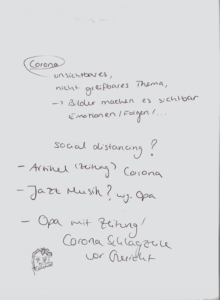 Corona
unsichtbares,
nicht greifbares Thema,
-> Bilder machen es sichtbar
Emotionen/Folgen/...
social distancing?
- Artikel (Zeitung) Corona
- Jazz Musik? wg. Opa
- Opa mit Zeitung!
Corona Schlagzeile
vor Gesicht